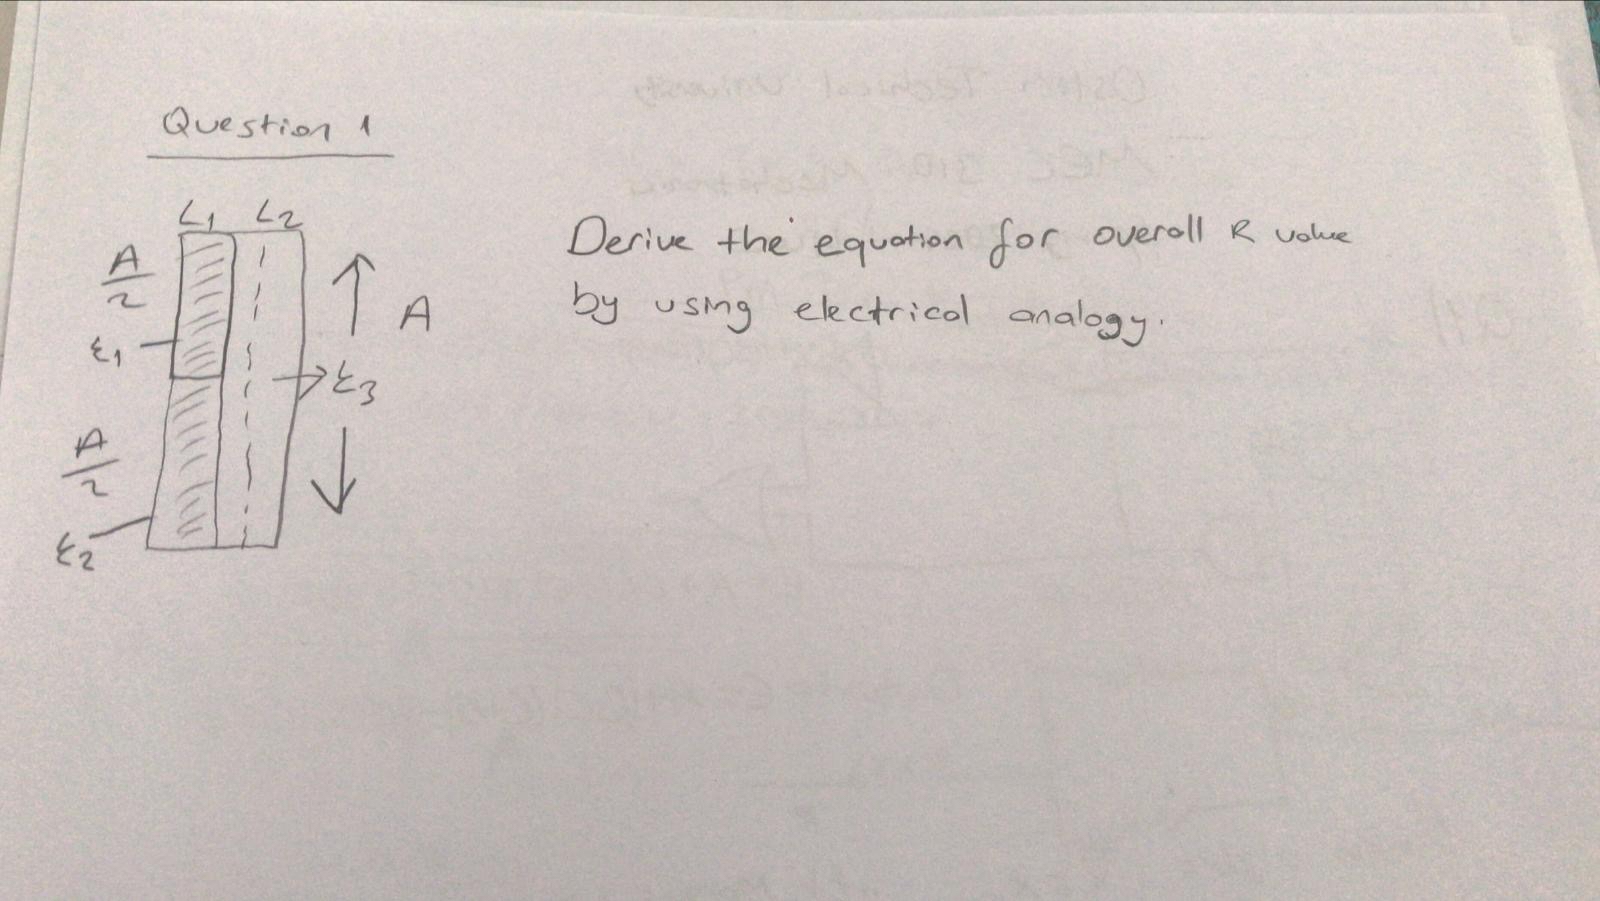 Question 1
L1 L2
A/2
A
ε1
ε3
A/2
ε2
Derive the equation for overall R value
by using electrical analogy.